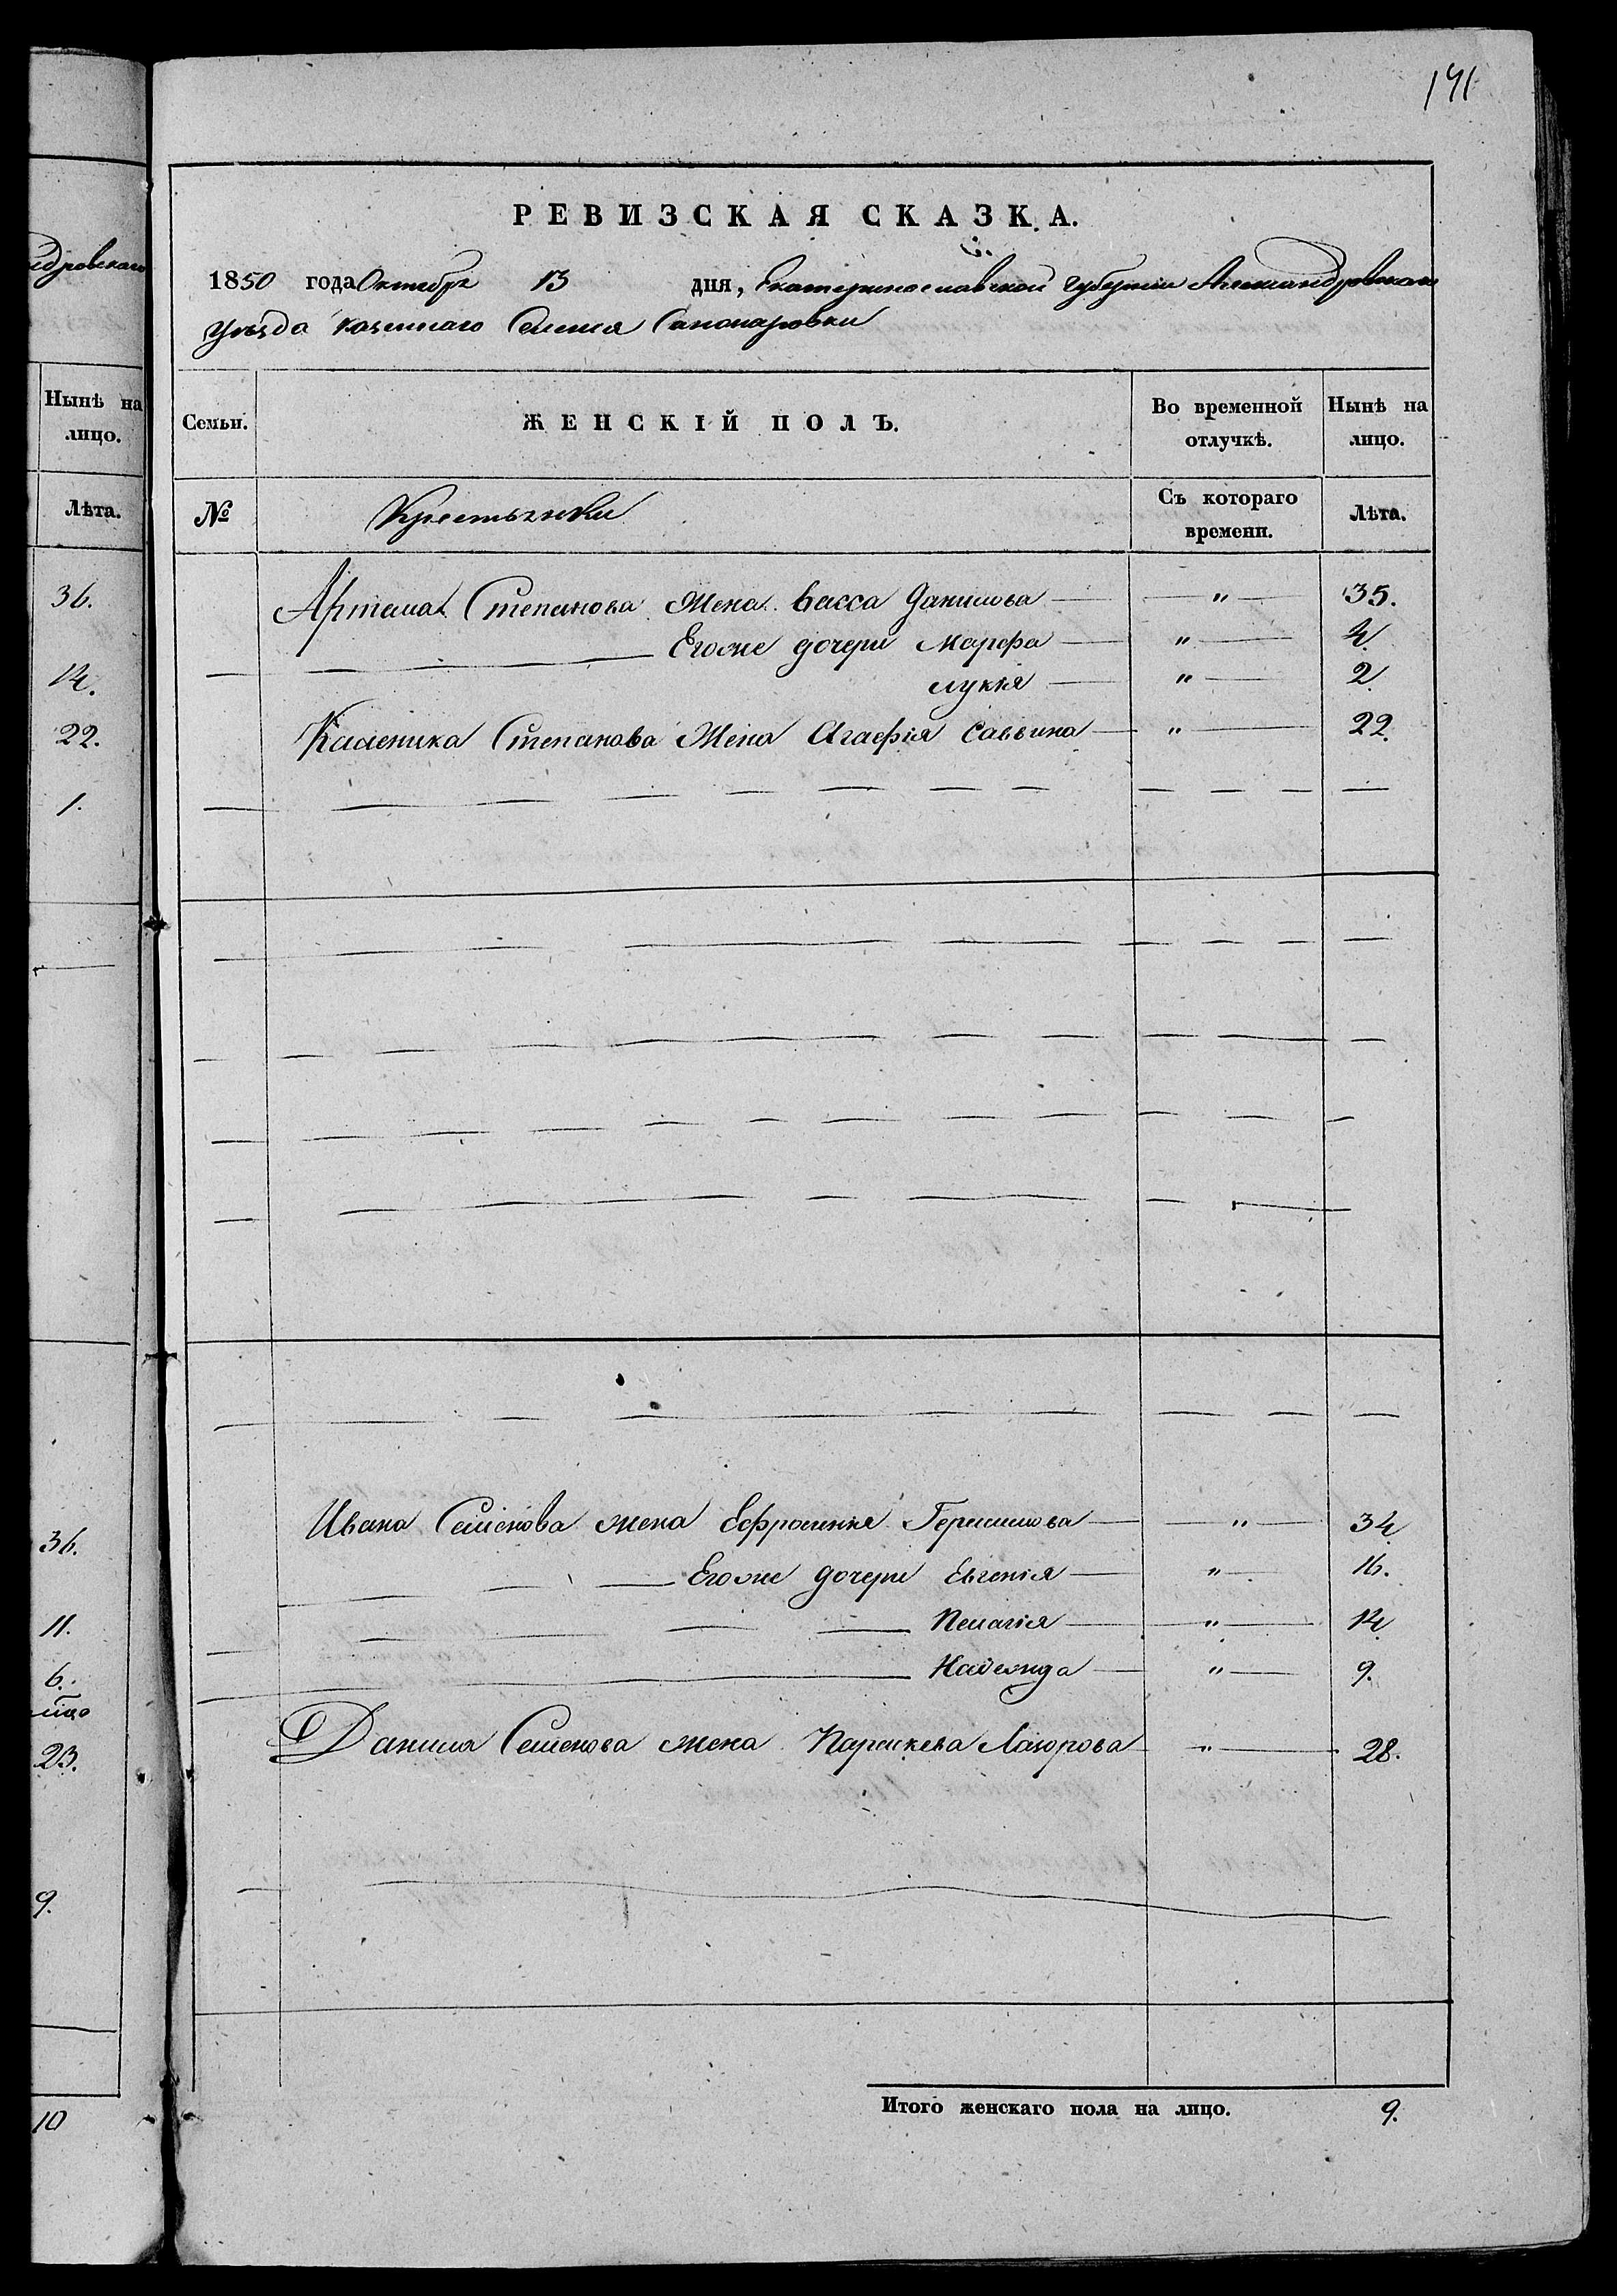 141
РЕВИЗСКАЯ СКАЗКА.
1850 года Октября 13 дня, Екатеринославской Губернии Александровскаго
уѣзда казеннаго Селенія
Семьи. ЖЕНСКІЙ ПОЛЪ. Во временной отлучкѣ. Нынѣ на лицо.
№ Крестьянки Съ котораго времени. Лѣта.
Артема Степанова Жена Васса Данилова — " — 35.
Егоже дочери Марфа — " — 4.
Лукія — " — 2.
Каленика Степанова Жена Агафія Саввина — " — 22.
Ивана Семенова жена Ефросинія — " — 34.
Егоже дочери Евгенія — " — 16.
Пелагія — " — 14.
Надежда — " — 9.
Данила Семенова жена Параскева Лазорова — " — 28.
Итого женскаго пола на лицо. 9.
ндровскаго
Нынѣ на лицо.
Лѣта.
36.
14.
22.
1.
36.
11.
6.
23.
9.
10